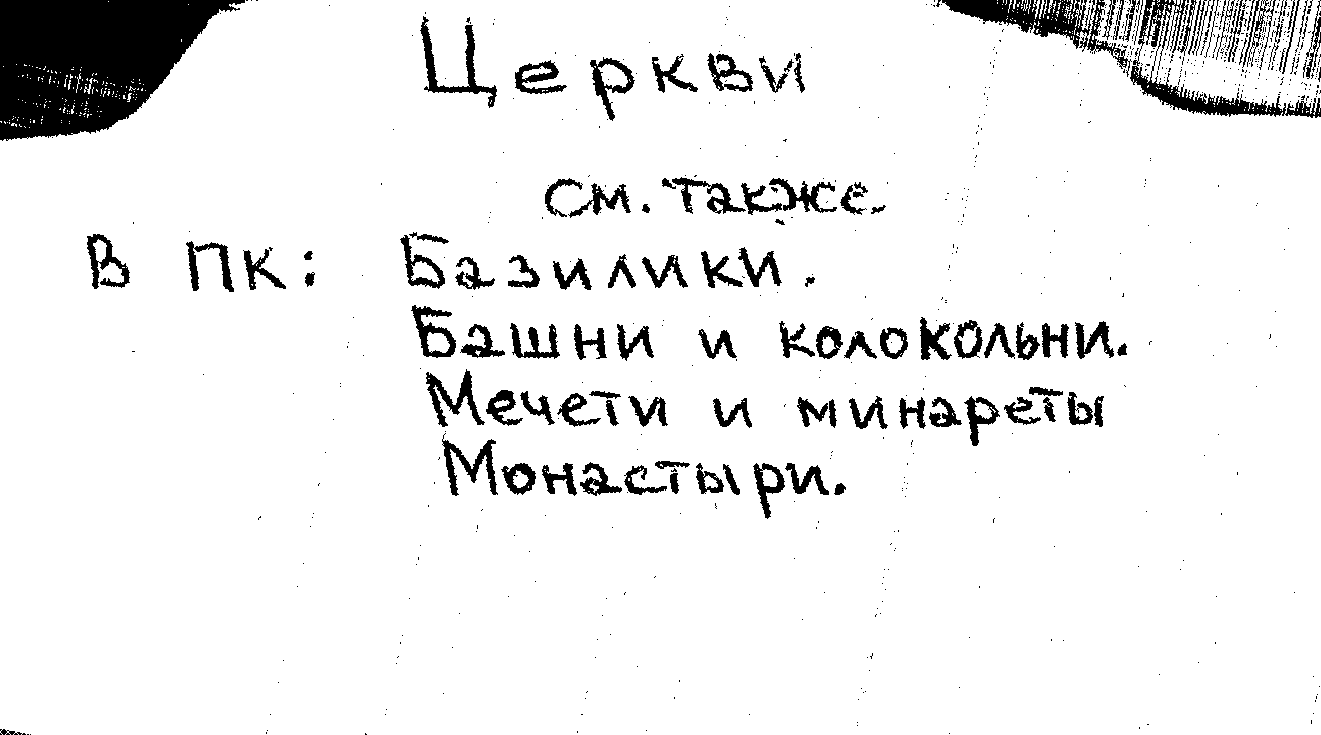 Церкви
см. также
В ПК: Базилики.
Башни и колокольни.
Мечети и минареты
Монастыри.